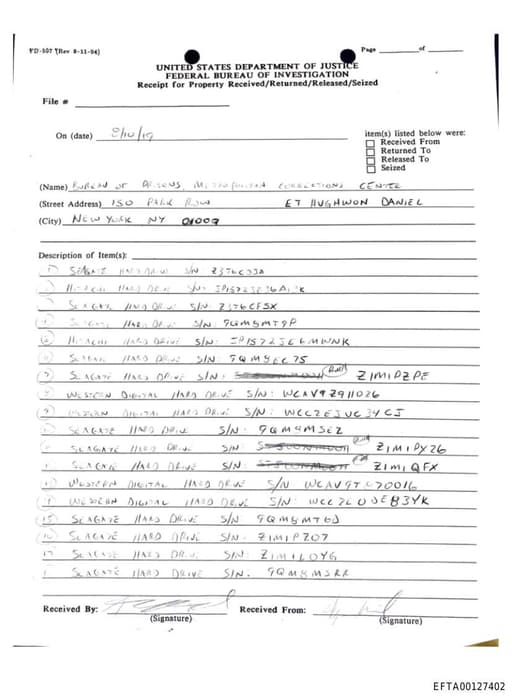 FD-597 (Rev 8-11-94)
Page of
UNITED STATES DEPARTMENT OF JUSTICE
FEDERAL BUREAU OF INVESTIGATION
Receipt for Property Received/Returned/Released/Seized
File #
On (date) 8/10/19
item(s) listed below were:
Received From
Returned To
Released To
Seized
(Name) BUREAU OF PRISONS, METROPOLITAN CORRECTIONS CENTER
(Street Address) 150 PARK ROW ET HUGHWON DANIEL
(City) NEW YORK NY
Description of Item(s):
SEAGATE HARD DRIVE S/N
HITACHI HARD DRIVE S/N:
SEAGATE HARD DRIVE S/N: Z3T6CFSX
SEAGATE HARD DRIVE S/N: 9QM8MT9P
HITACHI HARD DRIVE S/N:
SEAGATE HARD DRIVE S/N: 9QM8EC75
7 SEAGATE HARD DRIVE S/N: Z1M1PZPE
WESTERN DIGITAL HARD DRIVE S/N: WCAV9Z911026
WESTERN DIGITAL HARD DRIVE S/N: WCC2EJUC34CJ
SEAGATE HARD DRIVE S/N: 9QM8MSEZ
SEAGATE HARD DRIVE S/N: Z1M1PY26
SEAGATE HARD DRIVE S/N: Z1M1QFX
WESTERN DIGITAL HARD DRIVE S/N
WESTERN DIGITAL HARD DRIVE S/N:
15 SEAGATE HARD DRIVE S/N
16 SEAGATE HARD DRIVE S/N- Z1M1PZ07
17 SEAGATE HARD DRIVE S/N: Z1M1LOYG
SEAGATE HARD DRIVE S/N. 9QM8MSRR
Received By: Received From:
(Signature) (Signature)
EFTA00127402